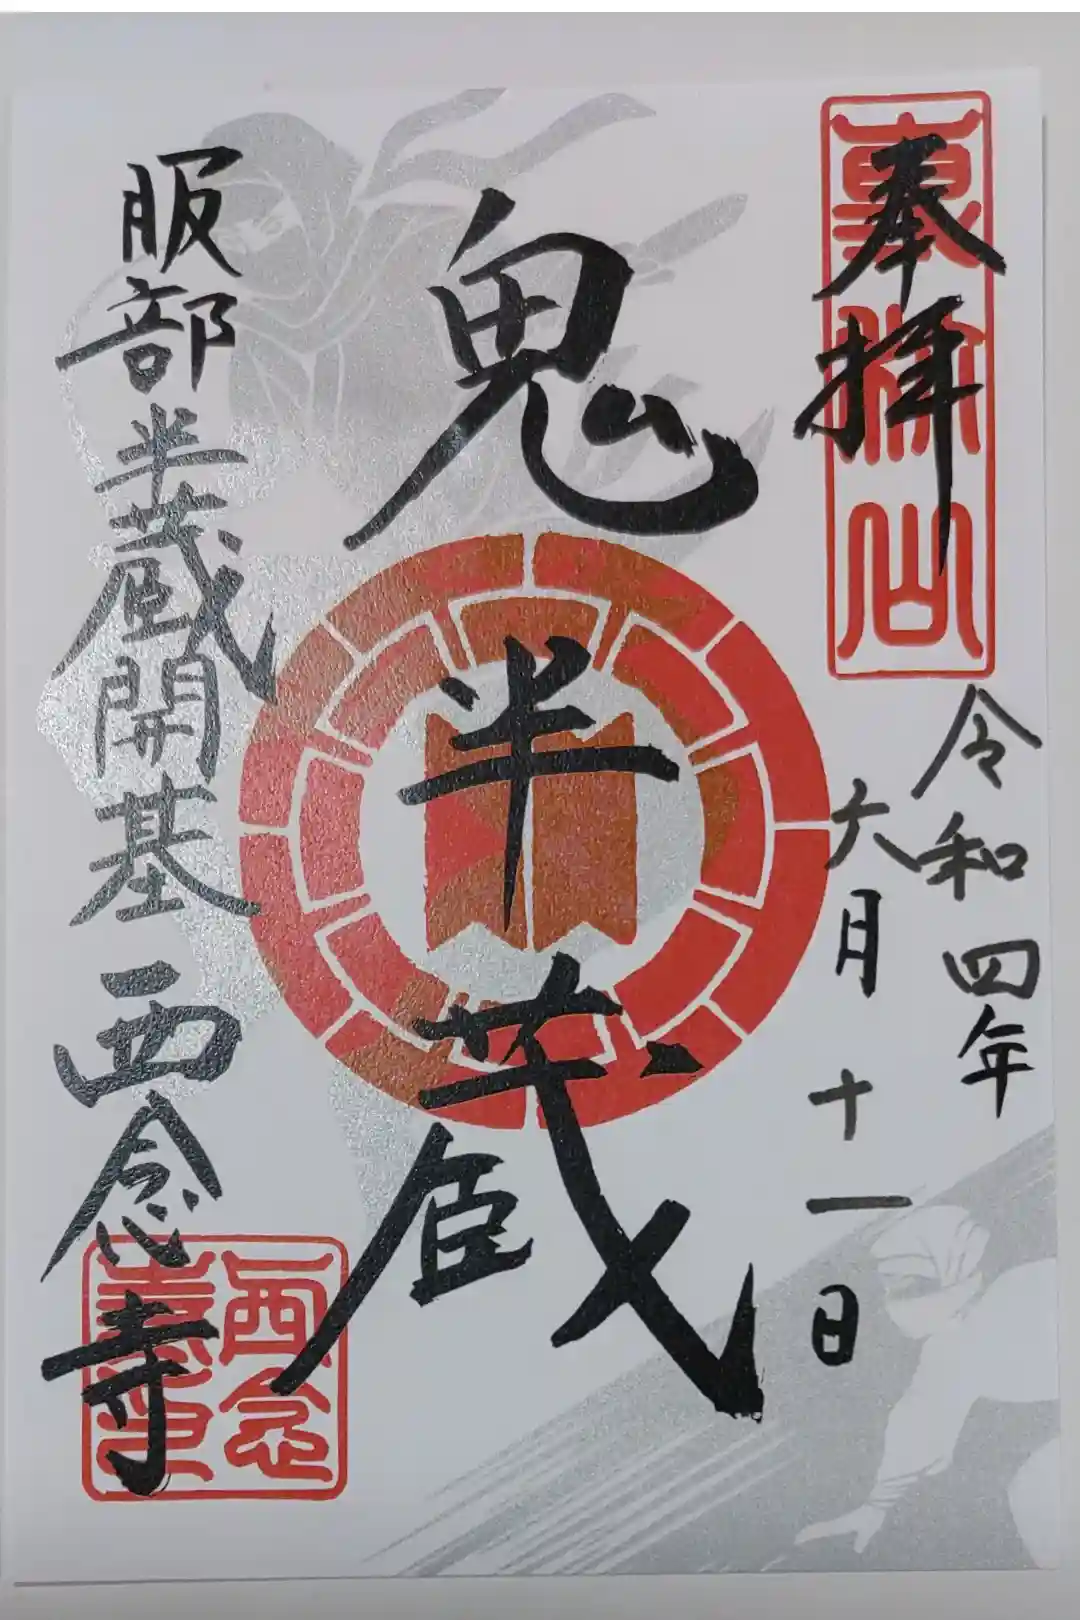 奉拝
令和四年
六月十一日
鬼半蔵
服部半蔵開基 西念寺
西念